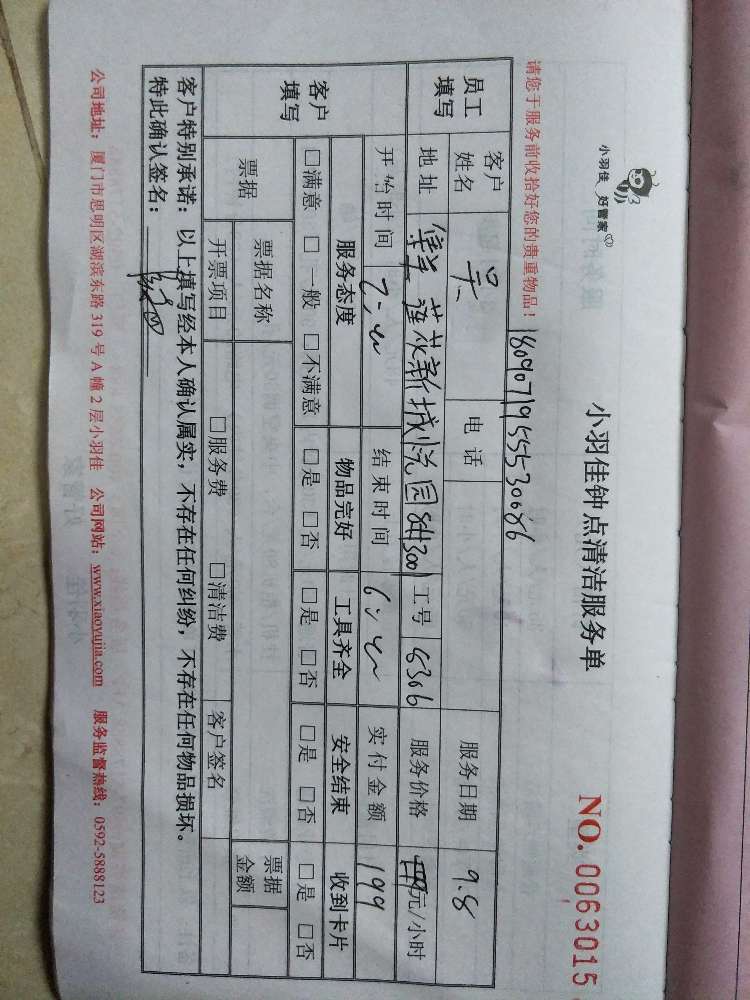 小羽佳 好管家
小羽佳钟点清洁服务单
NO. 0063015
请您于服务前收拾好您的贵重物品！
18090719555530686
员工填写 客户姓名 吴 电话 服务日期 9.8
地址 莲花新城悦园8#300 工号 5306 服务价格 元/小时
客户填写 开始时间 结束时间 实付金额 199
服务态度 物品完好 工具齐全 安全结束 收到卡片
□满意 □一般 □不满意 □是 □否 □是 □否 □是 □否 □是 □否
票据 票据名称 票据金额
开票项目 □服务费 □清洁费 客户签名
客户特别承诺：以上填写经本人确认属实，不存在任何纠纷，不存在任何物品损坏。
特此确认签名：
公司地址：厦门市思明区湖滨东路 319 号 A 幢 2 层小羽佳 公司网站：www.xiaoyujia.com 服务监督热线：0592-5888123